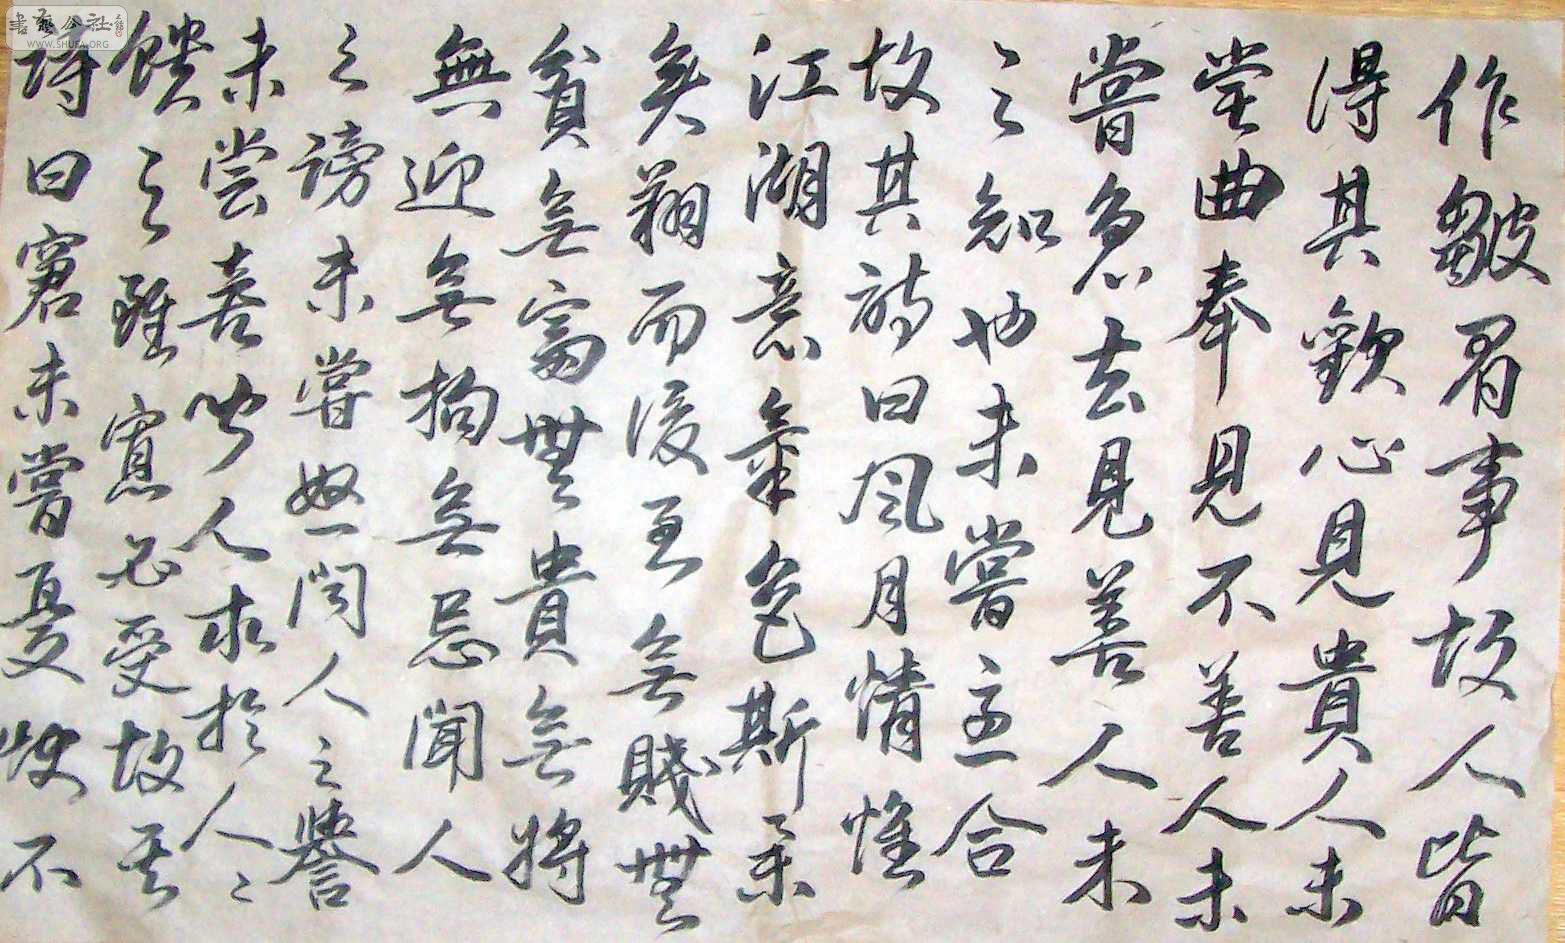 書藝公社
WWW.SHUFA.ORG
作皺眉事故人皆
得其歡心見貴人未
嘗曲奉見不善人未
嘗急去見善人未
之知也未嘗亟合
故其詩曰風月情懷
江湖意氣色斯舉
矣翔而後至無賤無
貧無富無貴無將
無迎無拘無忌聞人
之謗未嘗怒聞人之譽
未嘗喜人求於人人
饋之雖寡必受故其
詩曰窘未嘗憂不